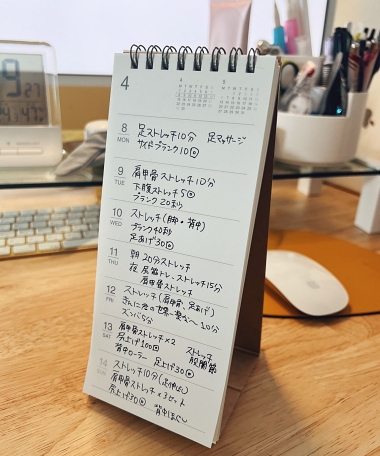 4
8 MON 足ストレッチ10分 足マッサージ
サイドプランク10回
9 TUE 肩甲骨ストレッチ10分
下腹ストレッチ5回
プランク20秒
10 WED ストレッチ(脚・背中)
プランク40秒
足あげ30回
11 THU 朝20分ストレッチ
夜 尻筋トレ、ストレッチ15分
肩甲骨ストレッチ
12 FRI ストレッチ(肩甲骨、足あげ)
10分
ズンバ5分
13 SAT 肩甲骨ストレッチ×2 ストレッチ
尻上げ100回 股関節
背中ローラー 足上げ30回
14 SUN ストレッチ10分
肩甲骨ストレッチ×3セット
尻上げ30回 背中ほぐし